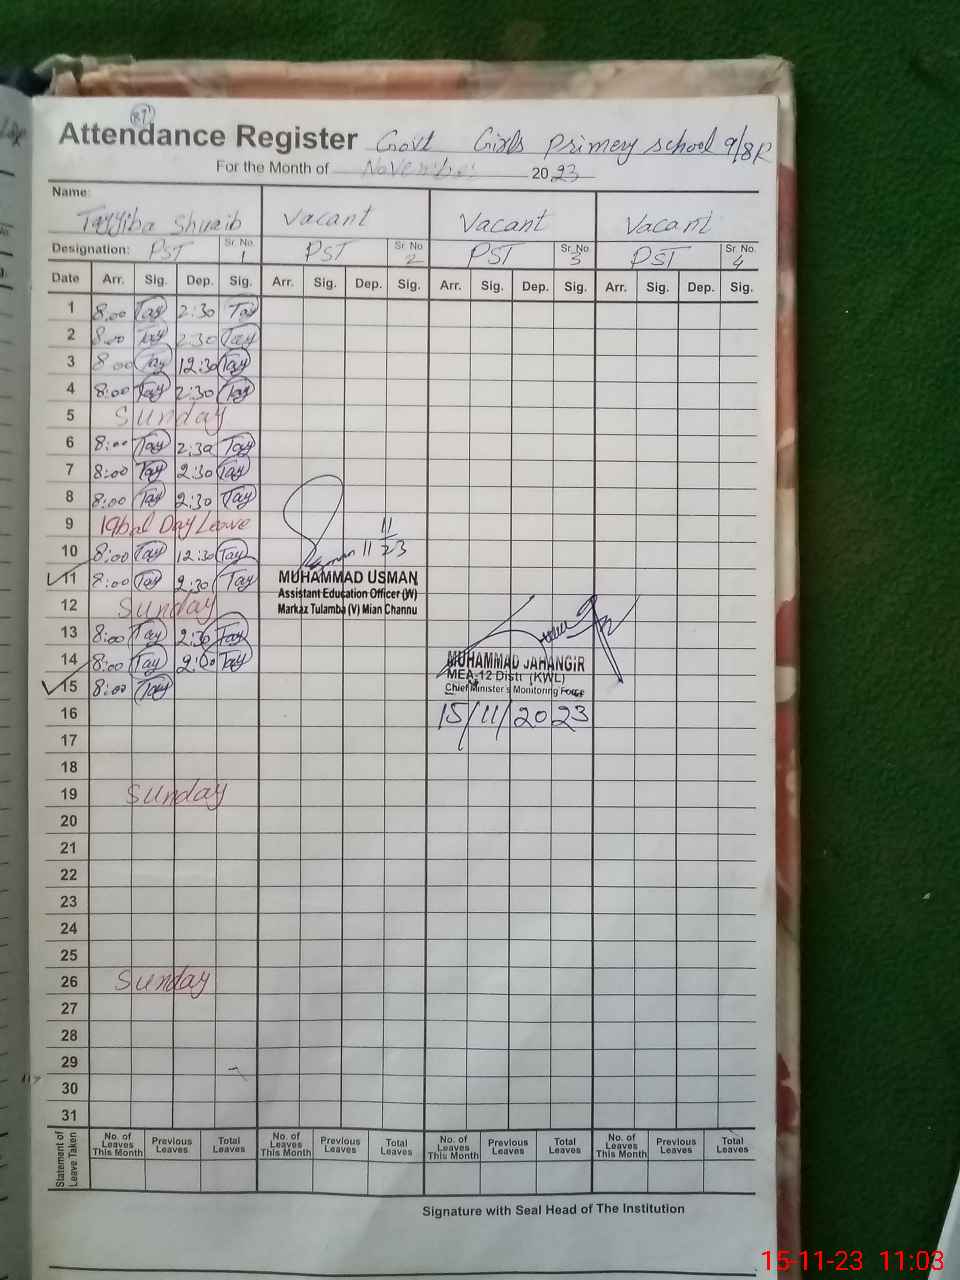 87
Attendance Register Govt Girls Primary school 9/8R
For the Month of November 2023
Name:
Tayyiba Shuaib Vacant Vacant Vacant
Designation: PST Sr. No. 1 PST Sr. No. 2 PST Sr. No. 3 PST Sr. No. 4
Date Arr. Sig. Dep. Sig. Arr. Sig. Dep. Sig. Arr. Sig. Dep. Sig. Arr. Sig. Dep. Sig.
1 8:00 Tay 2:30 Tay
2 8:00 Tay 2:30 Tay
3 8:00 Tay 12:30 Tay
4 8:00 Tay 2:30 Tay
5 Sunday
6 8:00 Tay 2:30 Tay
7 8:00 Tay 2:30 Tay
8 8:00 Tay 2:30 Tay
9 Iqbal Day Leave
10 8:00 Tay 12:30 Tay
11 8:00 Tay 2:30 Tay
12 Sunday
13 8:00 Tay 2:30 Tay
14 8:00 Tay 2:00 Tay
15 8:00 Tay
16
17
18
19 Sunday
20
21
22
23
24
25
26 Sunday
27
28
29
30
31
11 11/23
MUHAMMAD USMAN
Assistant Education Officer (W)
Markaz Tulamba (V) Mian Channu
MUHAMMAD JAHANGIR
MEA-12 Distt (KWL)
Chief Minister's Monitoring Force
15/11/2023
Statement of Leave Taken
No. of Leaves This Month Previous Leaves Total Leaves No. of Leaves This Month Previous Leaves Total Leaves No. of Leaves This Month Previous Leaves Total Leaves No. of Leaves This Month Previous Leaves Total Leaves
Signature with Seal Head of The Institution
15-11-23 11:03